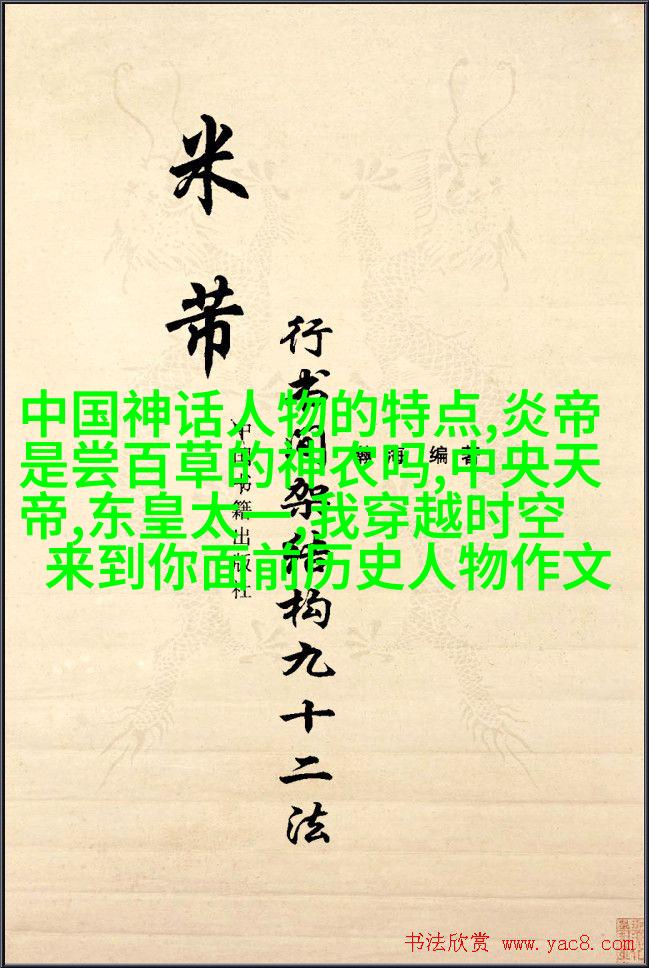 米芾
行书间架结构九十二法
海编著
中国书籍出版社
中国神话人物的特点,炎帝
是尝百草的神农吗,中央天
帝,东皇太一,我穿越时空
来到你面前历史人物作文
书法欣赏 www.yac8.com